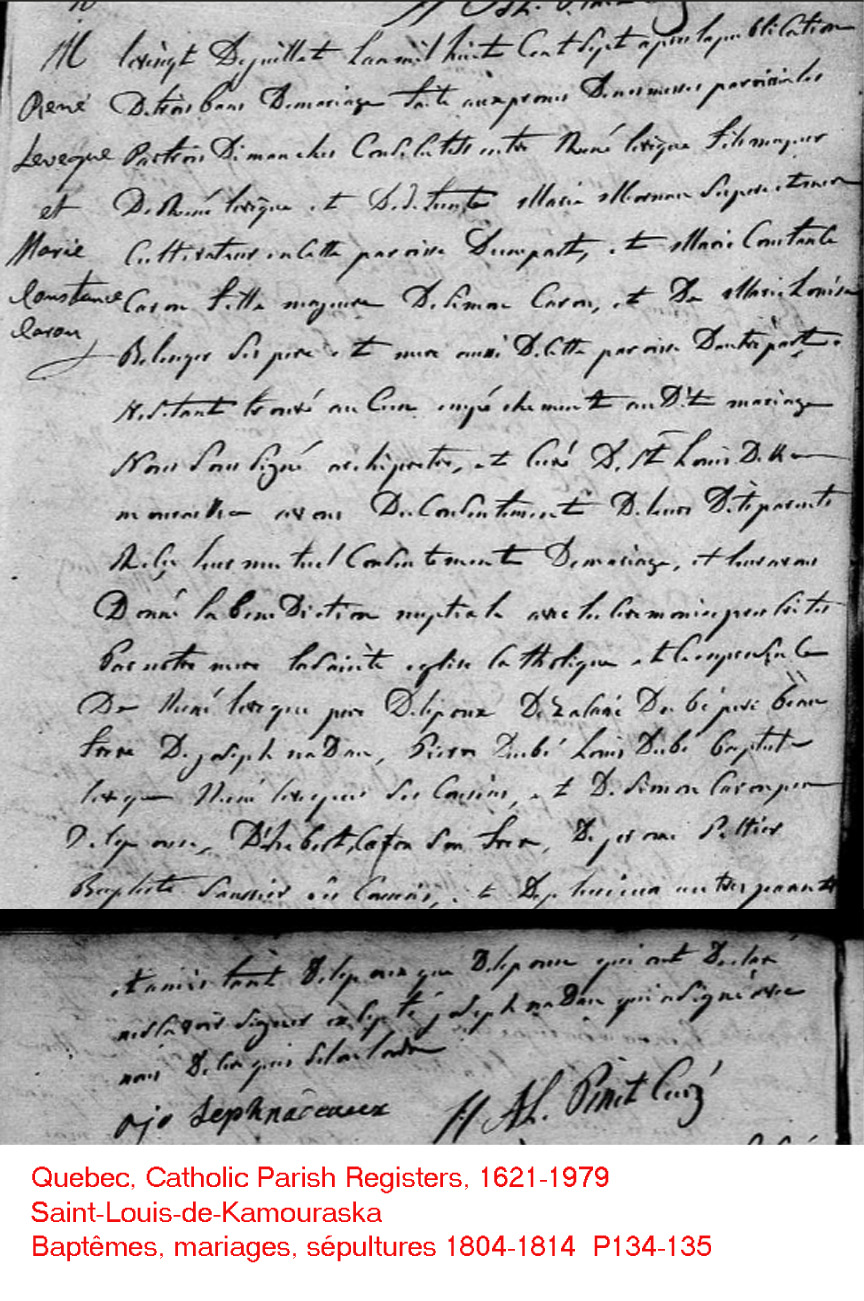 M
René
Leveque
et
Marie
Constance
Caron
le vingt De juillet L'an mil huit Cent Sept apres la publication
De trois bans De mariage faite aux prones De nos messes paroissiales
Par trois Dimanches Consecutifs entre René levêque fils majeur
De René levêque et De defunte Marie Morneau Ses pere et mere
Cultivateur en Cette paroisse D'une part, et Marie Constance
Caron fille majeure De Simon Caron, et De Marie Louise
Belenger Ses pere et mere aussi De Cette paroisse D'autre part.
Ne S'etant trouvé aucun empéchement au Dit mariage
Nous Sous Signé archipretre, et Curé De St Louis De Ka
mouraska avons Du Consentement De leurs Dits parents
Reçu leur mutuel Consentement De mariage, et leur avons
Donné la beneDiction nuptiale avec les Ceremonies prescrites
Par notre mere la Sainte eglise Catholique et En presence
De René leveque pere De l'epoux De Dubé pere beau
frere De joseph naDau, Pierre Dubé Louis Dubé Baptiste
leveque René leveque Ses Cousins, et De Simon Caron pere
De l'epouse, D'hubert Caron Son frere, De jerome Peltier
Baptiste Saussier Ses Cousins, et De plusieurs autres parents
et amis tant De l'epoux que De l'epouse qui ont Declaré
ne Savoir Signer excepté joseph naDau qui a Signé avec
nous De Ce requis Selon l'ordonnance
jo Seph nadeaux
Jh AL. Pinet Curé
Quebec, Catholic Parish Registers, 1621-1979
Saint-Louis-de-Kamouraska
Baptêmes, mariages, sépultures 1804-1814 P134-135